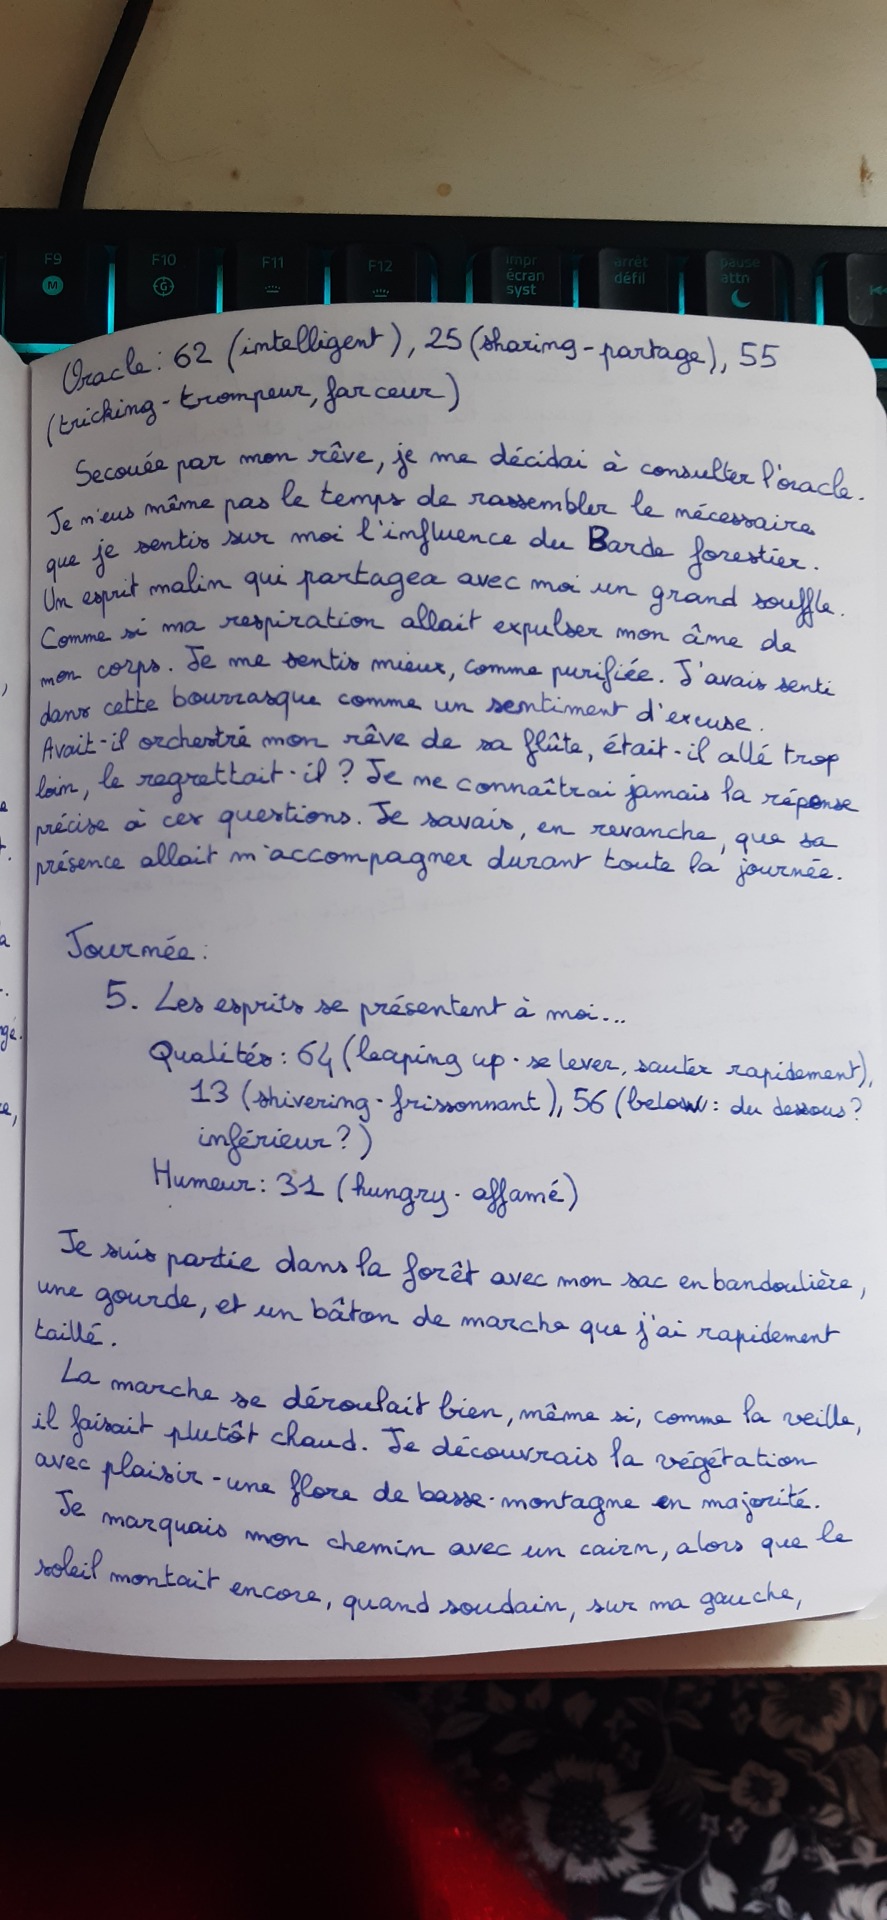 F9
F10
F11
F12
impr
écran
syst
arrêt
défil
pause
attn
M
G
Oracle : 62 (intelligent), 25 (sharing - partage), 55
(tricking - trompeur, farceur)
Secouée par mon rêve, je me décidai à consulter l'oracle.
Je n'eus même pas le temps de rassembler le nécessaire
que je sentis sur moi l'influence du Barde forestier.
Un esprit malin qui partagea avec moi un grand souffle.
Comme si ma respiration allait expulser mon âme de
mon corps. Je me sentis mieux, comme purifiée. J'avais senti
dans cette bourrasque comme un sentiment d'excuse.
Avait-il orchestré mon rêve de sa flûte, était-il allé trop
loin, le regrettait-il ? Je ne connaîtrai jamais la réponse
précise à ces questions. Je savais, en revanche, que sa
présence allait m'accompagner durant toute la journée.
Journée :
5. Les esprits se présentent à moi...
Qualités : 64 (leaping up - se lever, sauter rapidement),
13 (shivering - frissonnant), 56 (below : du dessous ?
inférieur ?)
Humeur : 31 (hungry - affamé)
Je suis partie dans la forêt avec mon sac en bandoulière,
une gourde, et un bâton de marche que j'ai rapidement
taillé.
La marche se déroulait bien, même si, comme la veille,
il faisait plutôt chaud. Je découvrais la végétation
avec plaisir - une flore de basse-montagne en majorité.
Je marquais mon chemin avec un cairn, alors que le
soleil montait encore, quand soudain, sur ma gauche,